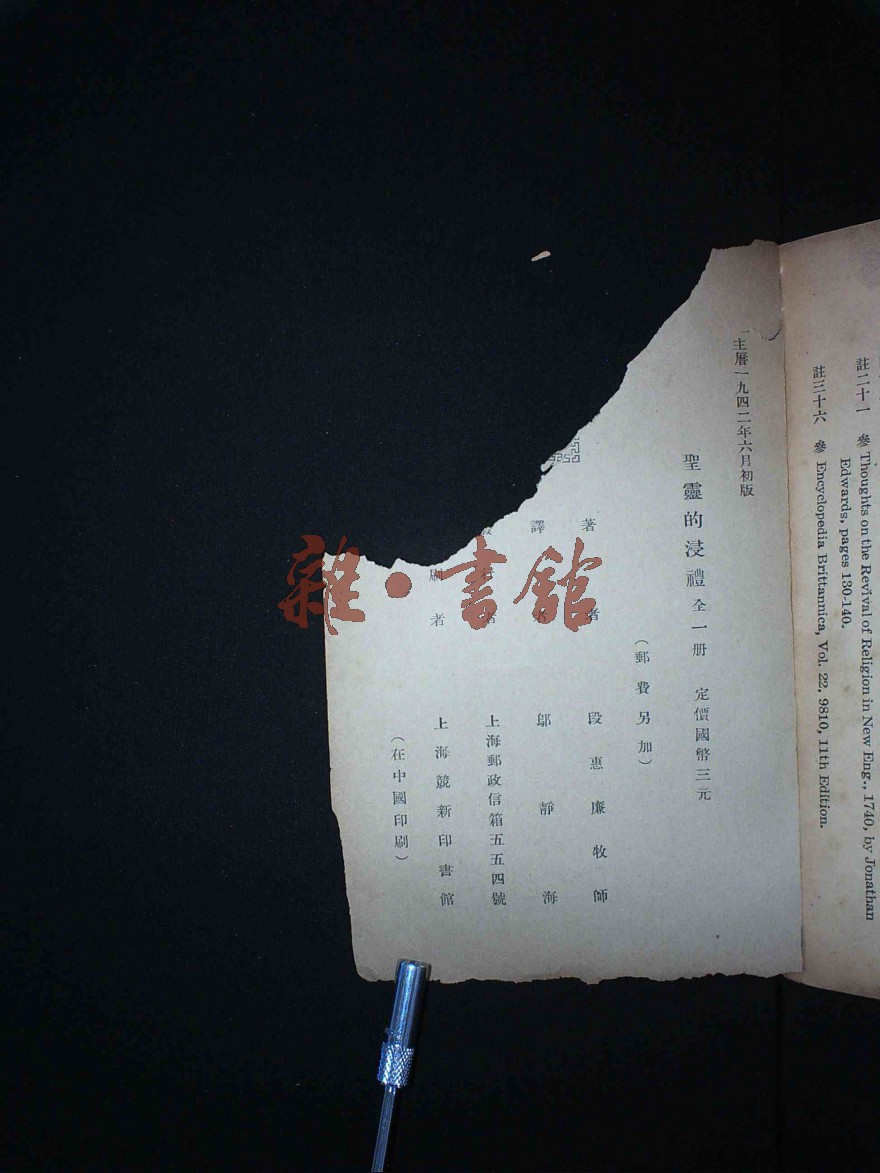 註二十一　參 Thoughts on the Revival of Religion in New Eng., 1740, by Jonathan
Edwards, pages 130-140.
註三十六　參 Encyclopedia Brittannica, Vol. 22, 9810, 11th Edition.
主曆一九四二年六月初版
聖靈的浸禮 全一册　定價國幣三元
（郵費另加）
著者　段惠廉牧師
譯　鄔靜海
者　上海郵政信箱五五四號
刷者　上海競新印書館
（在中國印刷）
雜·書館